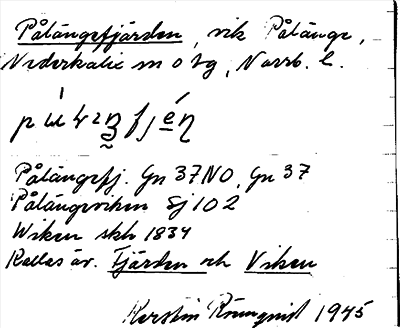 Pålängefjärden, vik Pålänge,
Nederkalix sn o tg, Norrb. l.
Pålängefj. Gn 37 NO, Gn 37
Pålängeviken Sj 102
Wiken skh 1834
Kallas äv. Fjärden och Viken
Kerstin Rönnqvist 1945